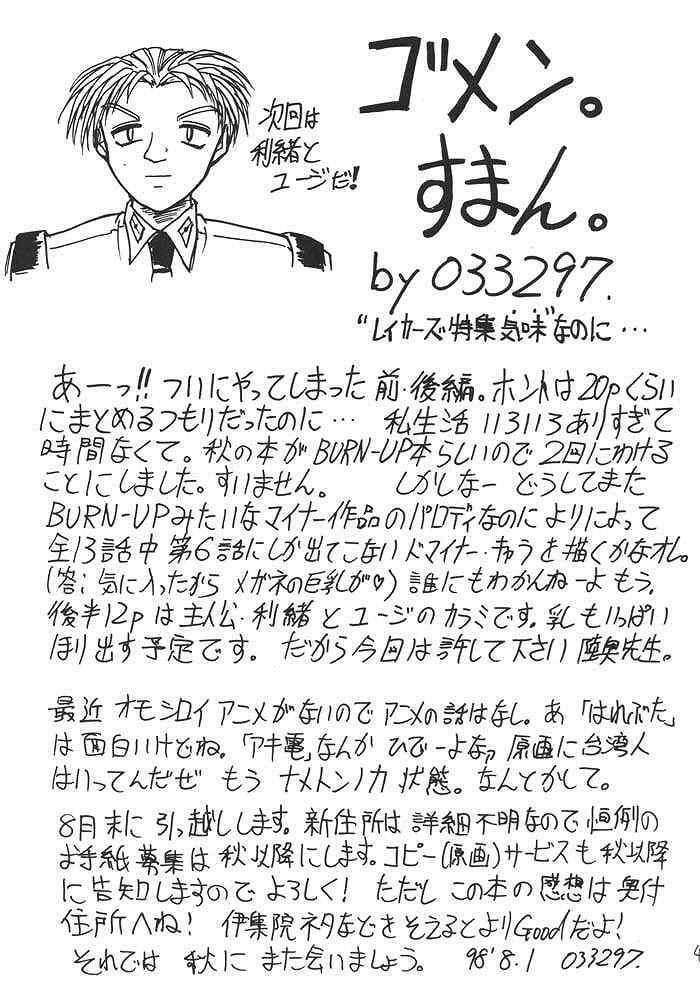 ゴメン。
すまん。
by 033297.
"レイカーズ特集気味"なのに…
次回は
利緒と
ユージだ!
あーっ!! ついにやってしまった 前・後編。ホントは20pくらい
にまとめるつもりだったのに… 私生活 いろいろありすぎて
時間なくて。秋の本がBURN-UP本らしいので2回にわける
ことにしました。すいません。 しかしなー どうしてまた
BURN-UPみたいなマイナー作品のパロディなのに よりによって
全13話中 第6話にしか出てこない ドマイナー・キャラを描くかなオレ。
(答;気に入ったから メガネの巨乳が♡) 誰にもわかんねーよ もう。
後半12pは主人公・利緒とユージのカラミです。乳もいっぱい
ほり出す予定です。 だから今回は許して下さい 先生。
最近 オモシロイアニメがないので アニメの話はなし。あ「はれぶた」
は面白いけどね。「アキ電」なんか ひでーよなっ 原画に台湾人
はいってんだぜ もう ナメトンノカ 状態。なんとかして。
8月末に引っ越しします。新住所は詳細不明なので恒例の
お手紙募集は秋以降にします。コピー(原画)サービスも秋以降
に告知しますので よろしく! ただし この本の感想は奥付
住所へね! 伊集院ネタなどをそえるとよりGoodだよ!
それでは 秋に また会いましょう。 98'8.1 033297.
4